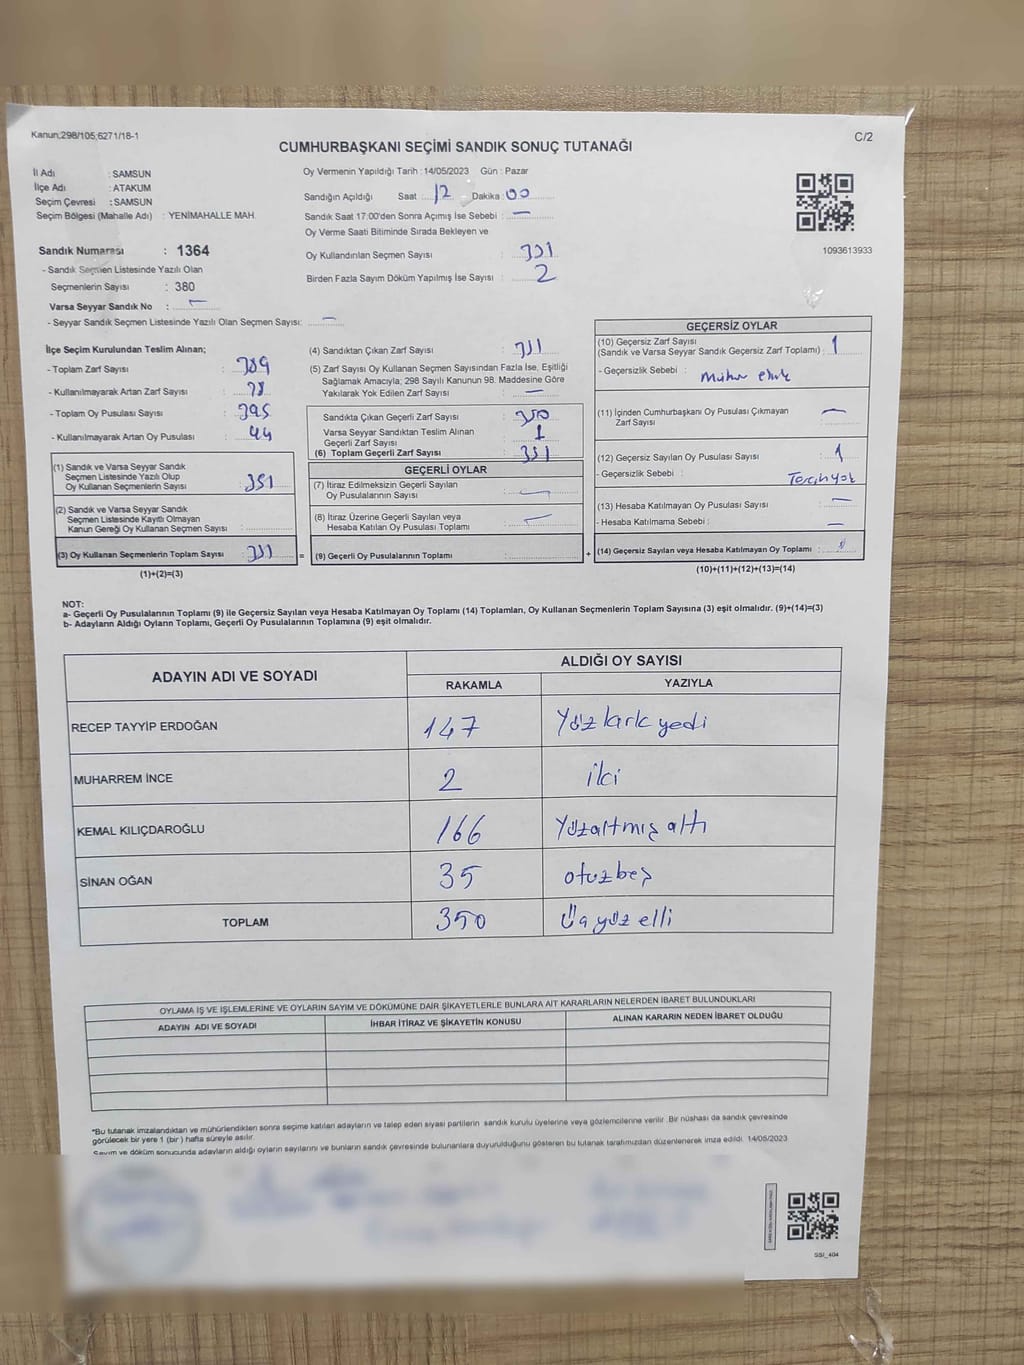 Kanun;298/105;6271/18-1
C/2
CUMHURBAŞKANI SEÇİMİ SANDIK SONUÇ TUTANAĞI
İl Adı : SAMSUN
İlçe Adı : ATAKUM
Seçim Çevresi : SAMSUN
Seçim Bölgesi (Mahalle Adı) : YENİMAHALLE MAH.
Sandık Numarası : 1364
- Sandık Seçmen Listesinde Yazılı Olan
Seçmenlerin Sayısı : 380
Varsa Seyyar Sandık No : —
- Seyyar Sandık Seçmen Listesinde Yazılı Olan Seçmen Sayısı: —
Oy Vermenin Yapıldığı Tarih : 14/05/2023 Gün : Pazar
Sandığın Açıldığı Saat 12 Dakika : 00
Sandık Saat 17:00'den Sonra Açımış İse Sebebi : —
Oy Verme Saati Bitiminde Sırada Bekleyen ve
Oy Kullandırılan Seçmen Sayısı : 351
Birden Fazla Sayım Döküm Yapılmış İse Sayısı : 2
1093613933
İlçe Seçim Kurulundan Teslim Alınan;
- Toplam Zarf Sayısı : 389
- Kullanılmayarak Artan Zarf Sayısı : 38
- Toplam Oy Pusulası Sayısı : 395
- Kullanılmayarak Artan Oy Pusulası : 44
(1) Sandık ve Varsa Seyyar Sandık
Seçmen Listesinde Yazılı Olup
Oy Kullanan Seçmenlerin Sayısı : 351
(2) Sandık ve Varsa Seyyar Sandık
Seçmen Listesinde Kayıtlı Olmayan
Kanun Gereği Oy Kullanan Seçmen Sayısı :
(3) Oy Kullanan Seçmenlerin Toplam Sayısı : 351 =
(1)+(2)=(3)
(4) Sandıktan Çıkan Zarf Sayısı : 351
(5) Zarf Sayısı Oy Kullanan Seçmen Sayısından Fazla İse, Eşitliği
Sağlamak Amacıyla; 298 Sayılı Kanunun 98. Maddesine Göre
Yakılarak Yok Edilen Zarf Sayısı : —
Sandıkta Çıkan Geçerli Zarf Sayısı : 350
Varsa Seyyar Sandıktan Teslim Alınan
Geçerli Zarf Sayısı : 1
(6) Toplam Geçerli Zarf Sayısı : 351
GEÇERLİ OYLAR
(7) İtiraz Edilmeksizin Geçerli Sayılan
Oy Pusulalarının Sayısı : —
(8) İtiraz Üzerine Geçerli Sayılan veya
Hesaba Katılan Oy Pusulası Toplamı : —
(9) Geçerli Oy Pusulalarının Toplamı : +
GEÇERSİZ OYLAR
(10) Geçersiz Zarf Sayısı
(Sandık ve Varsa Seyyar Sandık Geçersiz Zarf Toplamı) : 1
- Geçersizlik Sebebi : Mühür
(11) İçinden Cumhurbaşkanı Oy Pusulası Çıkmayan
Zarf Sayısı : —
(12) Geçersiz Sayılan Oy Pusulası Sayısı : 1
- Geçersizlik Sebebi : Tercih yok
(13) Hesaba Katılmayan Oy Pusulası Sayısı : —
- Hesaba Katılmama Sebebi : —
(14) Geçersiz Sayılan veya Hesaba Katılmayan Oy Toplamı :
(10)+(11)+(12)+(13)=(14)
NOT:
a- Geçerli Oy Pusulalarının Toplamı (9) ile Geçersiz Sayılan veya Hesaba Katılmayan Oy Toplamı (14) Toplamları, Oy Kullanan Seçmenlerin Toplam Sayısına (3) eşit olmalıdır. (9)+(14)=(3)
b- Adayların Aldığı Oyların Toplamı, Geçerli Oy Pusulalarının Toplamına (9) eşit olmalıdır.
ADAYIN ADI VE SOYADI
ALDIĞI OY SAYISI
RAKAMLA YAZIYLA
RECEP TAYYİP ERDOĞAN 147 Yüz kırk yedi
MUHARREM İNCE 2 iki
KEMAL KILIÇDAROĞLU 166 Yüzaltmış altı
SİNAN OĞAN 35 otuzbeş
TOPLAM 350 Üç yüz elli
OYLAMA İŞ VE İŞLEMLERİNE VE OYLARIN SAYIM VE DÖKÜMÜNE DAİR ŞİKAYETLERLE BUNLARA AİT KARARLARIN NELERDEN İBARET BULUNDUKLARI
ADAYIN ADI VE SOYADI İHBAR İTİRAZ VE ŞİKAYETİN KONUSU ALINAN KARARIN NEDEN İBARET OLDUĞU
*Bu tutanak imzalandıktan ve mühürlendikten sonra seçime katılan adayların ve talep eden siyasi partilerin sandık kurulu üyelerine veya gözlemcilerine verilir. Bir nüshası da sandık çevresinde
görülecek bir yere 1 (bir) hafta süreyle asılır.
Sayım ve döküm sonucunda adayların aldığı oyların sayılarını ve bunların sandık çevresinde bulunanlara duyurulduğunu gösteren bu tutanak tarafımızdan düzenlenerek imza edildi. 14/05/2023
SSI_404